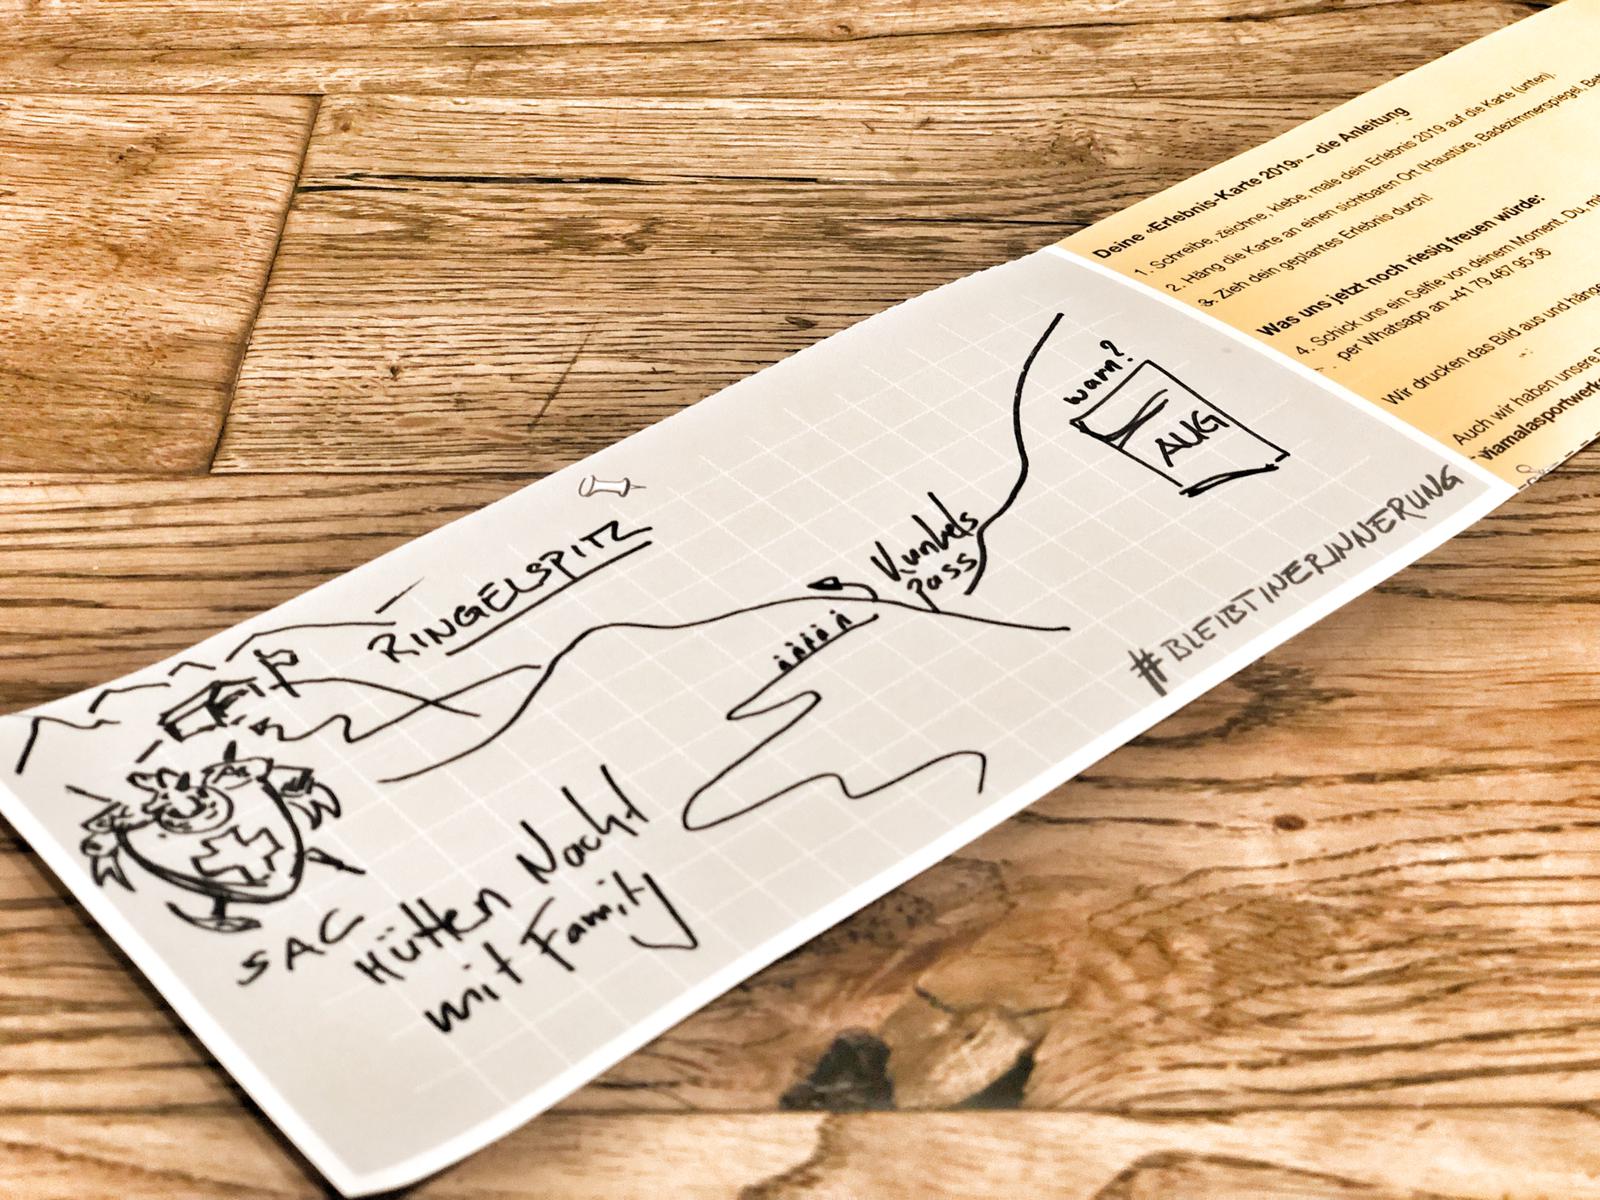 Deine «Erlebnis-Karte 2019» – die Anleitung
1. Schreibe, zeichne, klebe, male dein Erlebnis 2019 auf die Karte (unten).
2. Häng die Karte an einen sichtbaren Ort (Haustüre, Badezimmerspiegel, Bet
3. Zieh dein geplantes Erlebnis durch!
Was uns jetzt noch riesig freuen würde:
4. Schick uns ein Selfie von deinem Moment. Du, mit
per Whatsapp an +41 79 467 95 36
Wir drucken das Bild aus und hänge
Auch wir haben unsere
viamalasportwerk
wann?
AUG
Kunkels
pass
RINGELSPITZ
#BLEIBTINERINNERUNG
SAC
Hütten Nacht
mit Family